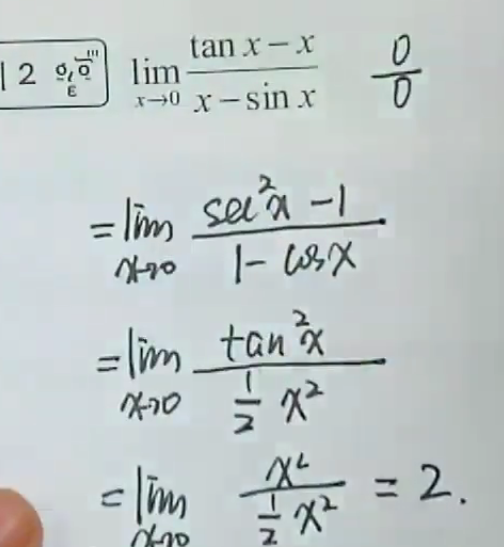 12 lim x→0 (tan x − x)/(x − sin x) 0/0
= lim x→0 (sec²x − 1)/(1 − cosx)
= lim x→0 (tan²x)/(½ x²)
= lim x→0 (x²)/(½ x²) = 2.